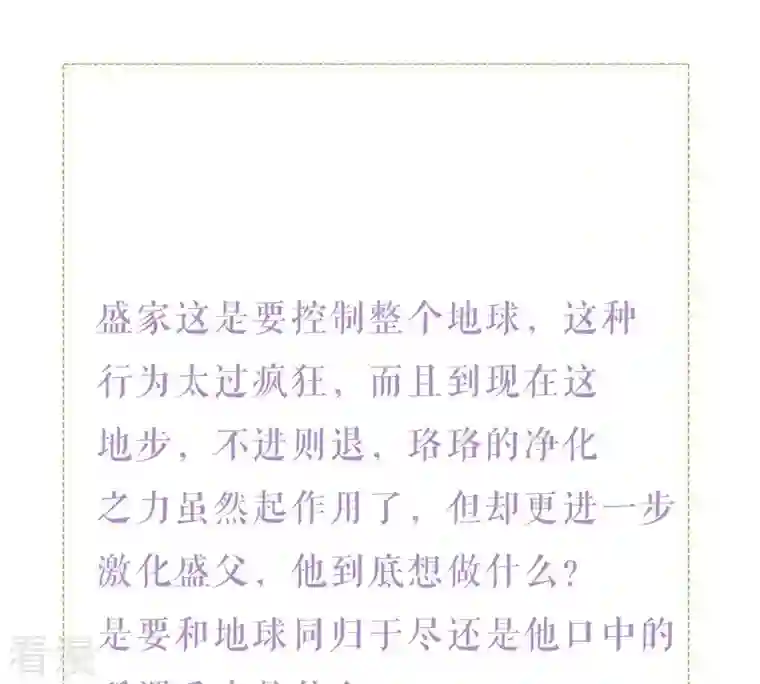 盛家这是要控制整个地球，这种
行为太过疯狂，而且到现在这
地步，不进则退，珞珞的净化
之力虽然起作用了，但却更进一步
激化盛父，他到底想做什么？
是要和地球同归于尽还是他口中的
看漫